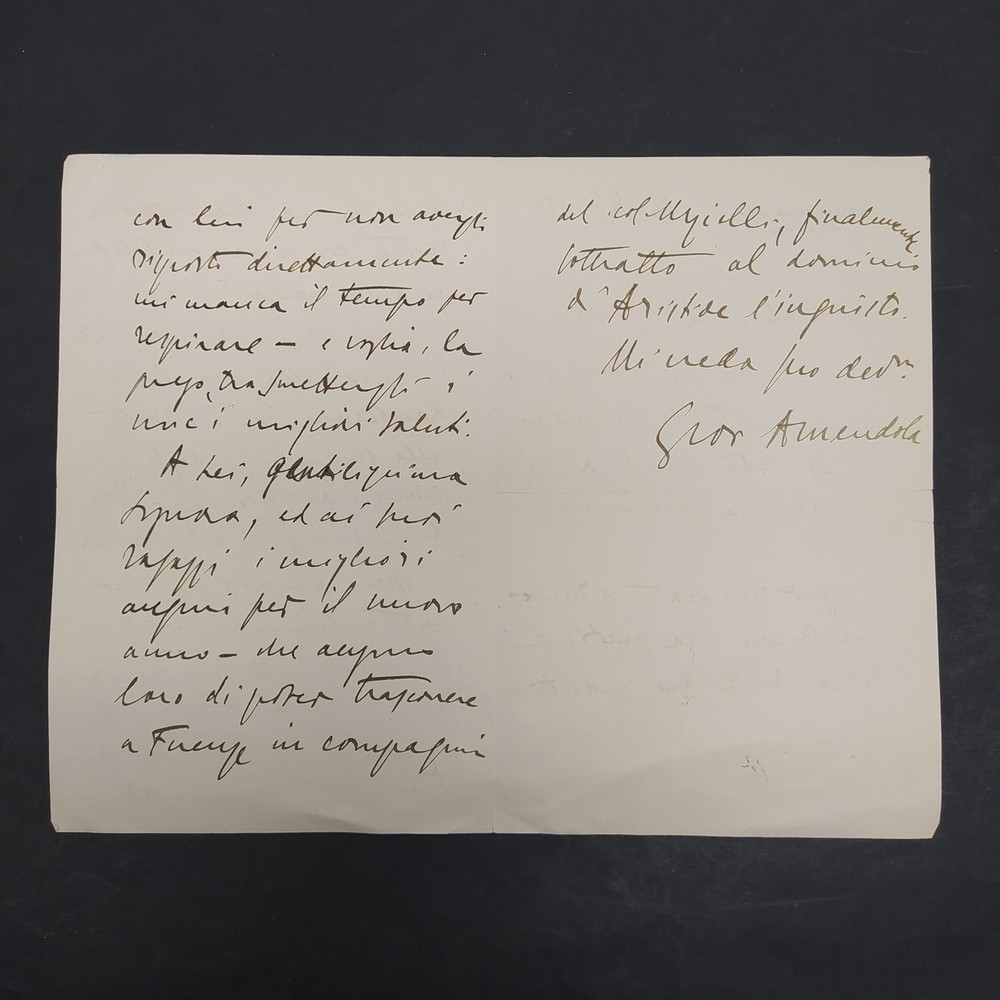 con lui per non avergli
risposto direttamente:
mi manca il tempo per
respirare – e voglia, la
prego, trasmettergli i
miei migliori saluti.
A Lei, gentilissima
Signora, ed ai suoi
ragazzi i migliori
auguri per il nuovo
anno – che auguro
loro di poter trascorrere
a Firenze in compagnia
del col. finalmente
sottratto al dominio
d'Aristide l'ingiusto.
Mi creda suo dev.mo
Giov Amendola